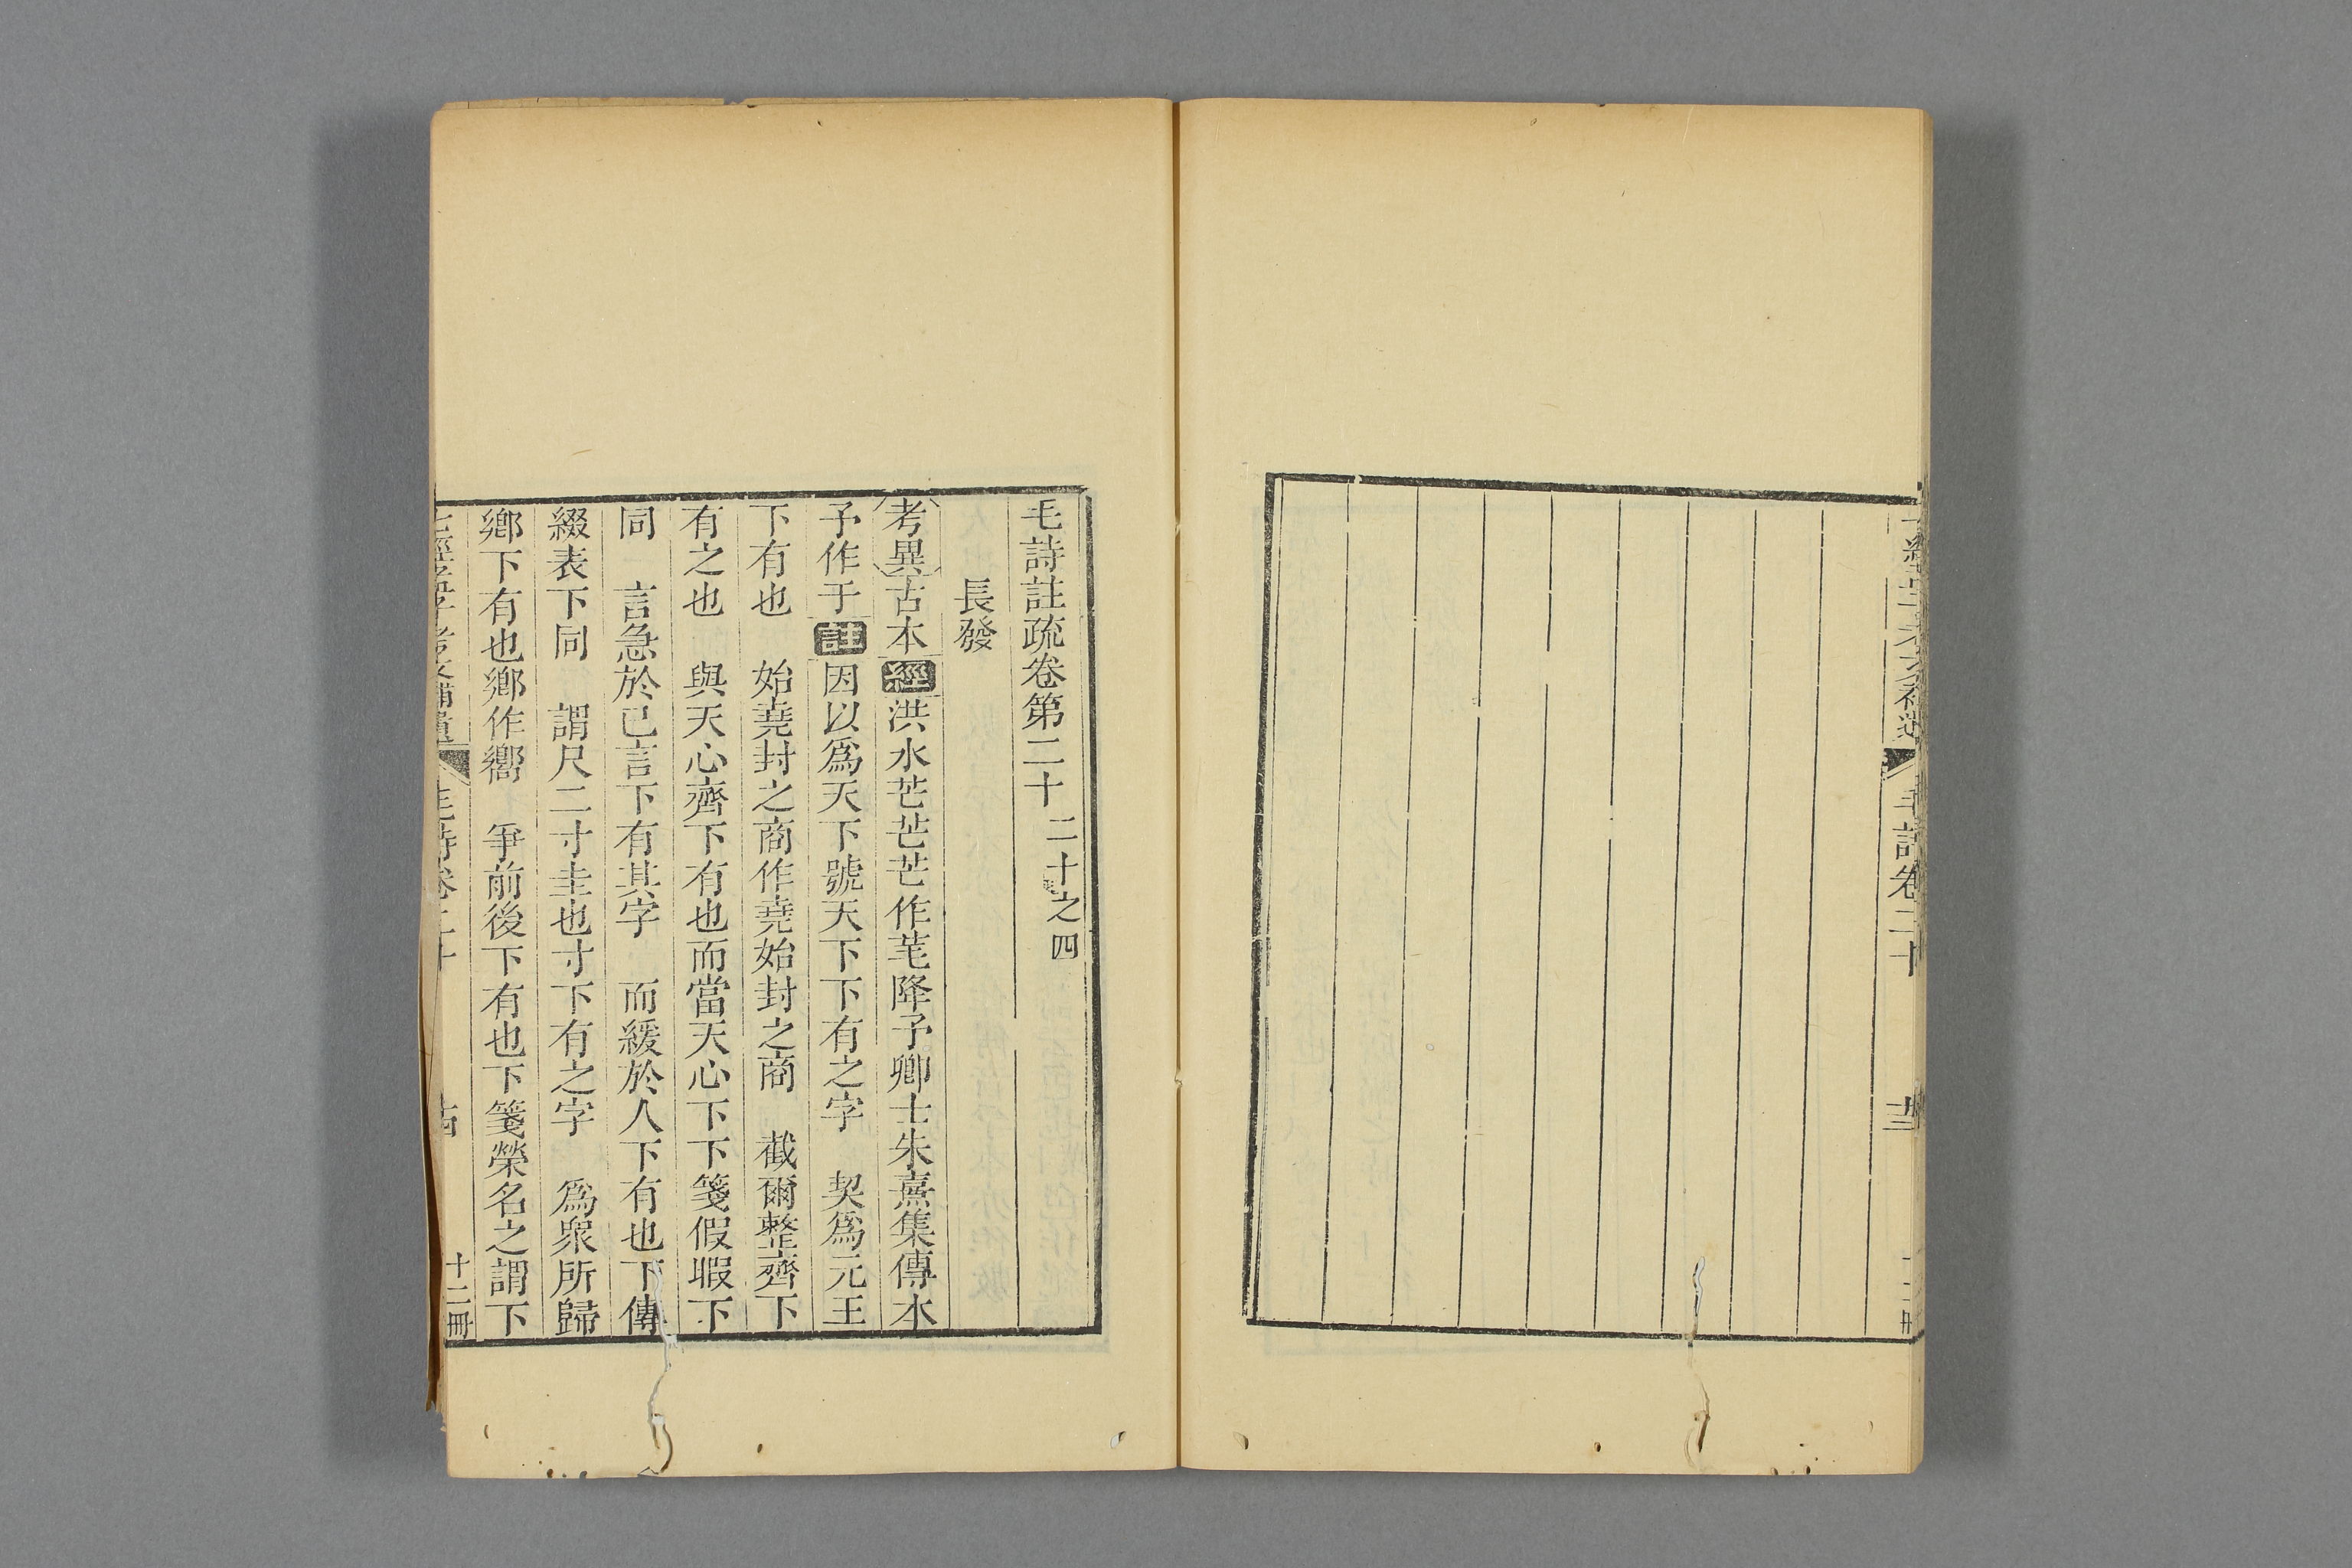 毛詩卷二十
毛詩註疏卷第二十 二十之四
長發
考異古本經洪水芒芒芒作茫降予卿士朱熹集傳本
予作于註因以爲天下號天下下有之字 契爲元王
下有也 始堯封之商作堯始封之商 截爾整齊下
有之也 與天心齊下有也而當天心下下箋假暇下
同 言急於已言下有其字 而緩於人下有也下傳
綴表下同 謂尺二寸圭也寸下有之字 爲衆所歸
鄉下有也鄉作嚮 爭前後下有也下箋榮名之謂下
十二冊